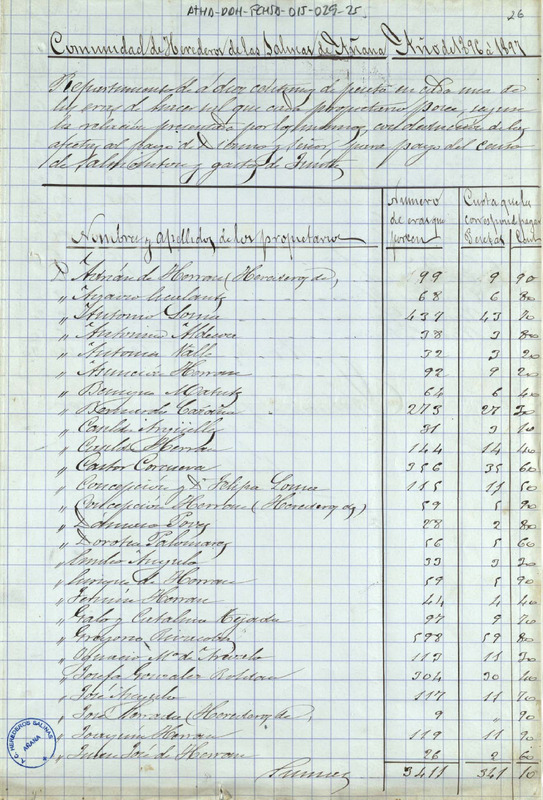 ATHA-DDH-FCHSA-015-029-25
26
Comunidad de Herederos de las Salinas de Añana Año de 1896 á 1897
Repartimiento de á diez céntimos de peseta en cada una de
las eras de hacer sal que cada propietario posee, segun
la relación presentada por los mismos, con destino de los
afectos al pago de Seños, para pago del censo
de Salmonton y gastos de Junta
Numero de eras que poseen
Cuota que les corresponde pagar
Pesetas Cent
Nombres y apellidos de los propietarios
D. Adrián de Herran (Herederos de) 99 9 90
" Ignacio 68 6 80
" Antonio Loma 437 43 70
" Antonina 38 3 80
" Antonia Valle 32 3 20
" Asunción Herran 92 9 20
" Benigno 64 6 40
" Bernardo 273 27 30
" Casilda Angulo 31 3 10
" Casilda Herran 144 14 40
" Castor Corcuera 356 35 60
" Concepción y Dª Felipa Loma 115 11 50
" Concepción Herran (Herederos de) 59 5 90
" Damiana Perez 28 2 80
" Dorotea Palomares 56 5 60
" Emilio Angulo 33 3 30
" Enrique de Herran 59 5 90
" Fermín Herran 44 4 40
" Galo y Catalina Tejada 97 9 70
" Gregorio 598 59 80
" Ignacio Mª de 113 11 30
" Josefa Gonzalez Roldan 304 30 40
" José Angulo 117 11 70
" José (Herederos de) 9 " 90
" Joaquin Herran 119 11 90
" Juan José de Herran 26 2 60
Suma 3411 341 10
A.C. HEREDEROS SALINAS
AÑANA